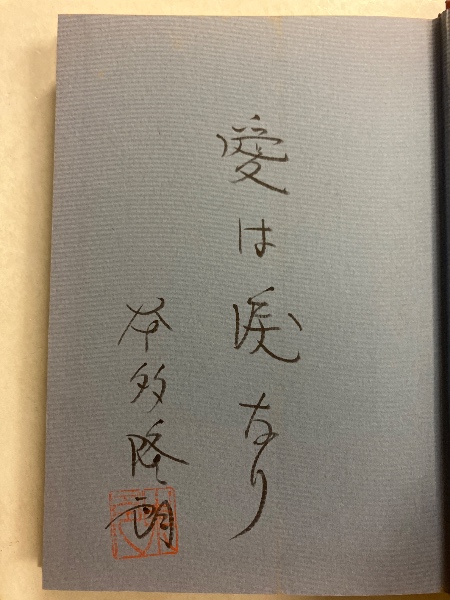 愛は涙なり
本多隆朗